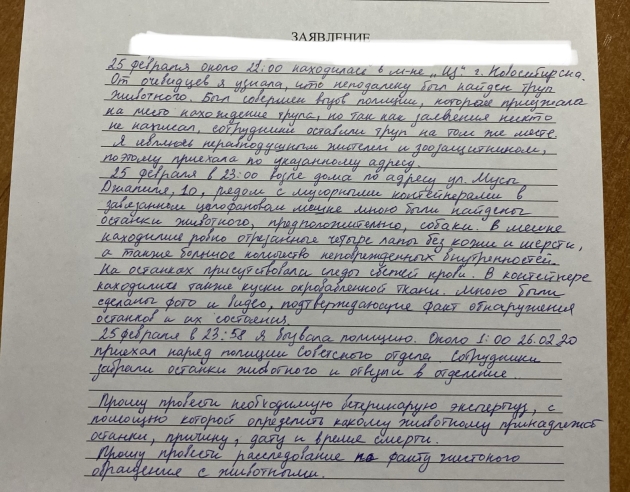 ЗАЯВЛЕНИЕ
25 февраля около 22:00 находилась в м-не "Щ" г. Новосибирска.
От очевидцев я узнала, что неподалеку был найден труп
животного. Был совершен вызов полиции, которая приезжала
на место нахождение трупа, но так как заявления никто
не написал, сотрудники оставили труп на том же месте.
Я являюсь неравнодушным жителем и зоозащитником,
поэтому приехала по указанному адресу.
25 февраля в 23:00 возле дома по адресу ул. Мусы
Джалиля, 10, рядом с мусорными контейнерами в
завязанном целофановом мешке мною были найдены
останки животного, предположительно, собаки. В мешке
находились ровно отрезанные четыре лапы без кожи и шерсти,
а также большое количество неповрежденных внутренностей
На останках присутствовали следы свежей крови. В контейнере
находились также куски окровавленной ткани. Мною были
сделаны фото и видео, подтверждающие факт обнаружения
останков и их состояния.
25 февраля в 23:58 я вызвала полицию. Около 1:00 26.02.20
приехал наряд полиции Советского отдела. Сотрудники
забрали останки животного и отвезли в отделение
Прошу провести необходимую ветеринарную экспертизу, с
помощью которой определить какому животному принадлежат
останки, причину, дату и время смерти.
Прошу провести расследование по факту жестокого
обращения с животными.